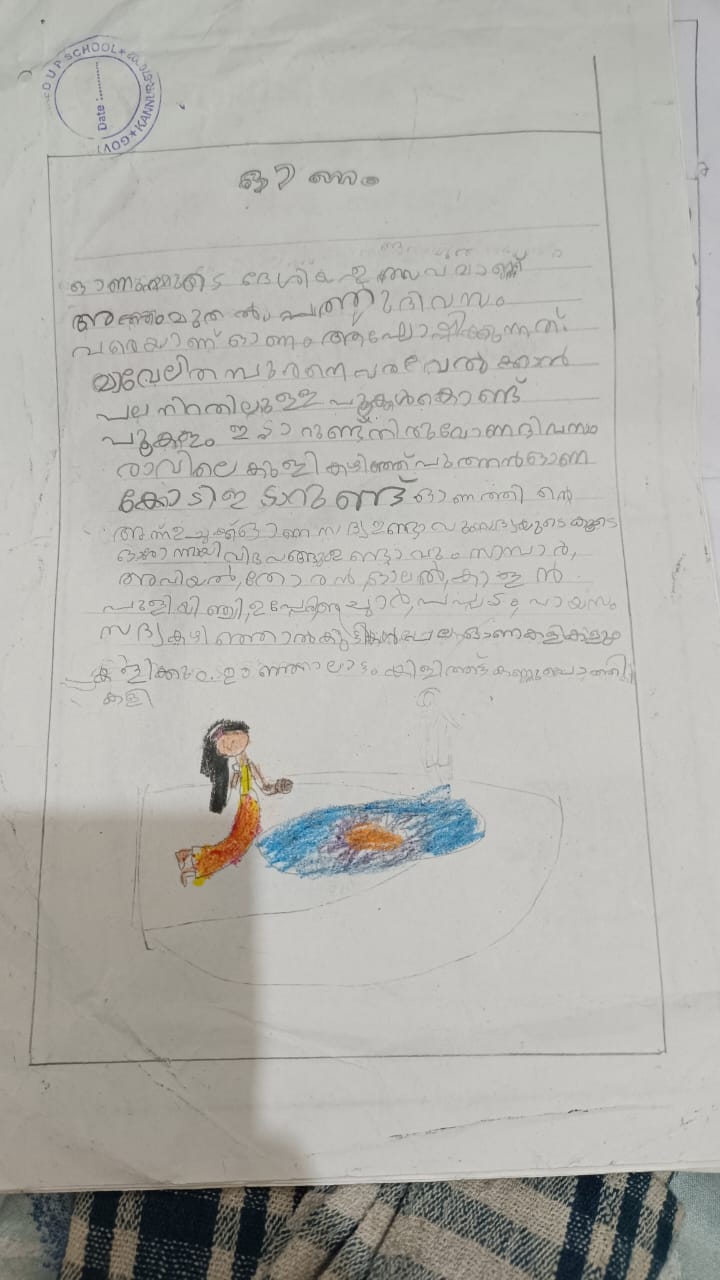 UP SCHOOL
Date :
GOVT KANNUR
ഓണം
ഓണം നമ്മുടെ ദേശീയ ഉത്സവമാണ്
അത്തം മുതൽ പത്തു ദിവസം
വരെയാണ് ഓണം ആഘോഷിക്കുന്നത്.
മാവേലി തമ്പുരാനെ വരവേൽക്കാൻ
പല നിറത്തിലുള്ള പൂക്കൾകൊണ്ട്
പൂകളം ഇടാറുണ്ട് തിരുവോണദിവസം
രാവിലെ കുളി കഴിഞ്ഞ് പുത്തൻ ഓണ
കോടി ഇടാറുണ്ട് ഓണത്തിൻ്റെ
അന്ന് ഉച്ചക്ക് ഓണസദ്യ ഉണ്ടാവും സദ്യയുടെ കൂടെ
വിഭവങ്ങളുണ്ടാവും സാമ്പാർ,
അവിയൽ, തോരൻ, ഓലൻ, കാളൻ
പുളിയിഞ്ചി, ഉപ്പേരി, അച്ചാർ, പപ്പടം, പായസം
സദ്യ കഴിഞ്ഞാൽ കുട്ടികൾ പല ഓണകളികളും
കളിക്കും. ഊഞ്ഞാലാട്ടം കിളിത്തട്ട് കണ്ണുപൊത്തി
കളി